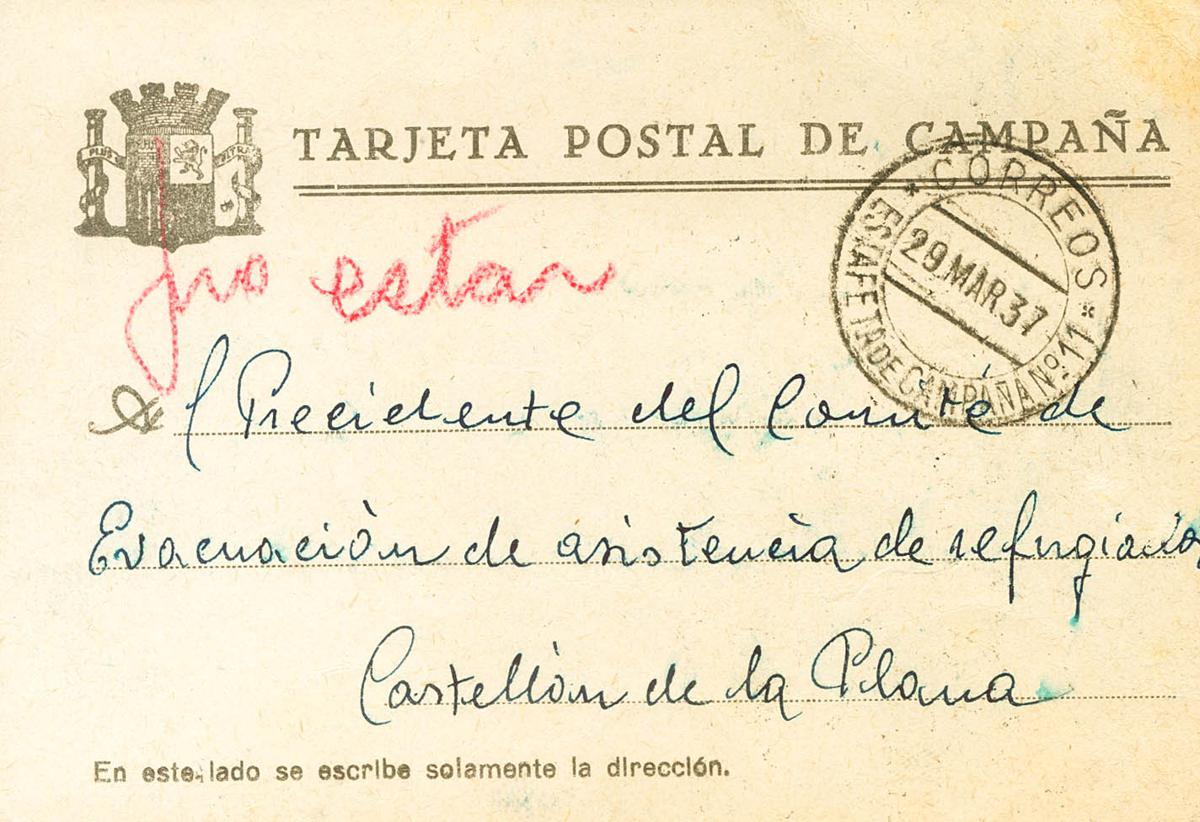 PLUS ULTRA
TARJETA POSTAL DE CAMPAÑA
* CORREOS *
29.MAR.37
ESTAFETA DE CAMPAÑA Nº 11
no estan
A l Precidente del Comité de
Evacuación de asistencia de refugiados
Castellón de la Plana
En este lado se escribe solamente la dirección.